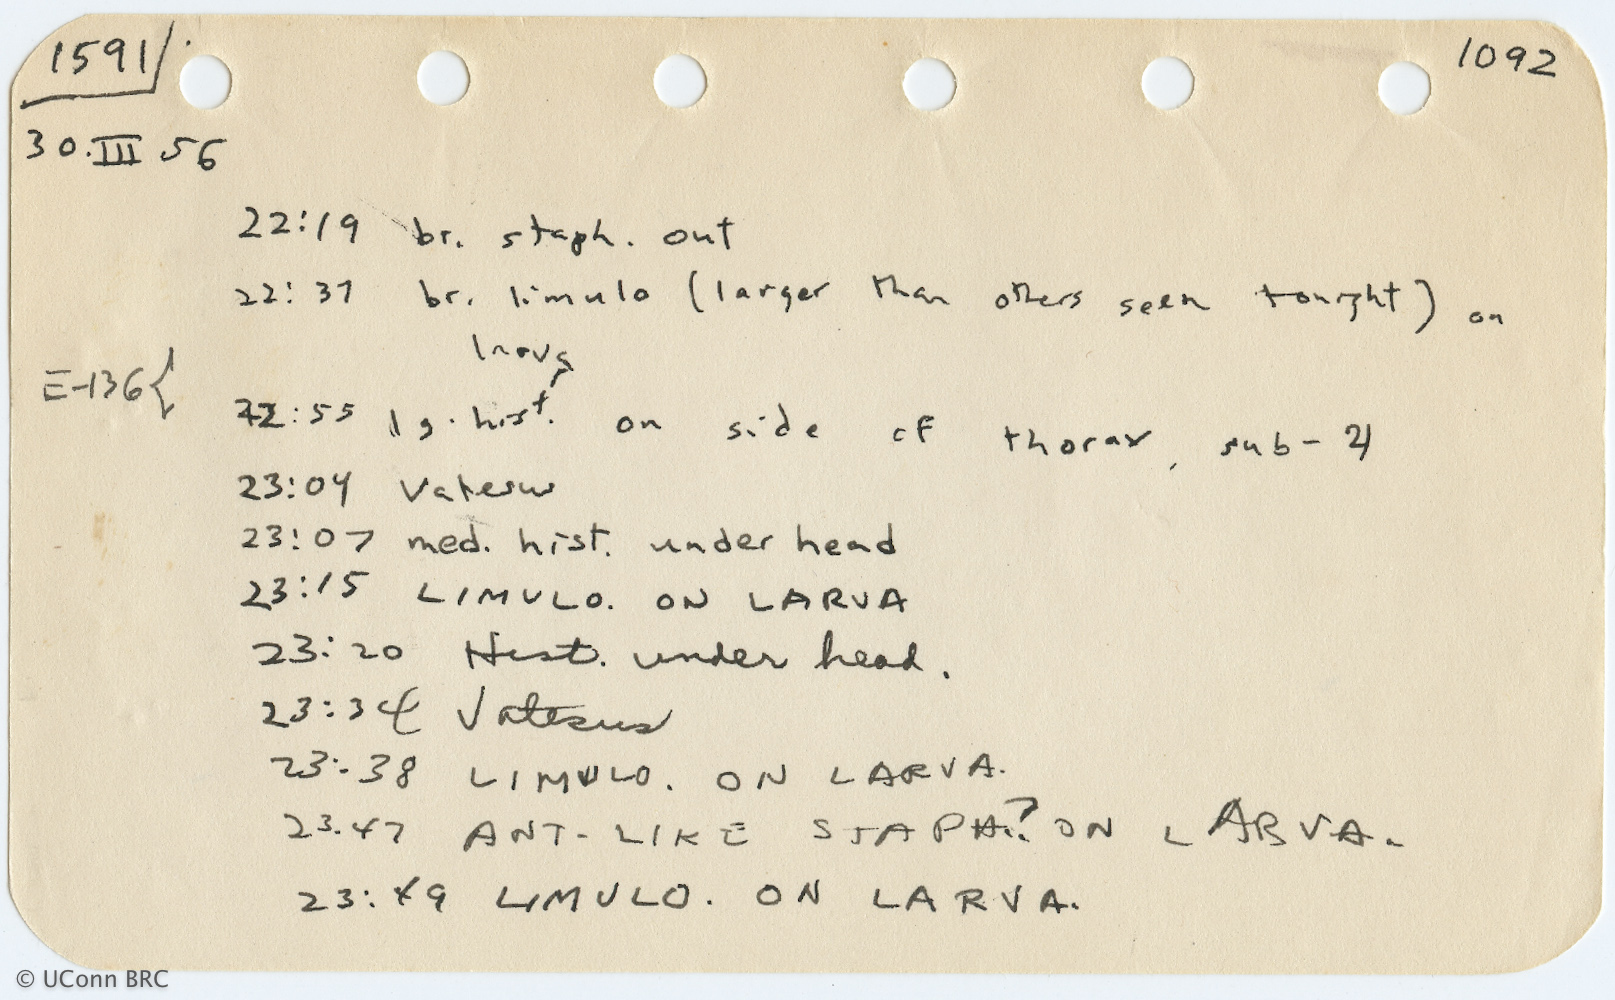 1591/ 1092
30.III 56
22:19 br. staph. out
22:37 br. limulo (larger than others seen tonight) on
larva
E-136{ 22:55 lg. hist. on side of thorax, sub-
23:04 Vatesus
23:07 med. hist. under head
23:15 LIMULO. ON LARVA
23:20 Hist. under head.
23:34 Vatesus
23:38 LIMULO. ON LARVA.
23.47 ANT-LIKE STAPH.? ON LARVA.
23:49 LIMULO. ON LARVA.
© UConn BRC